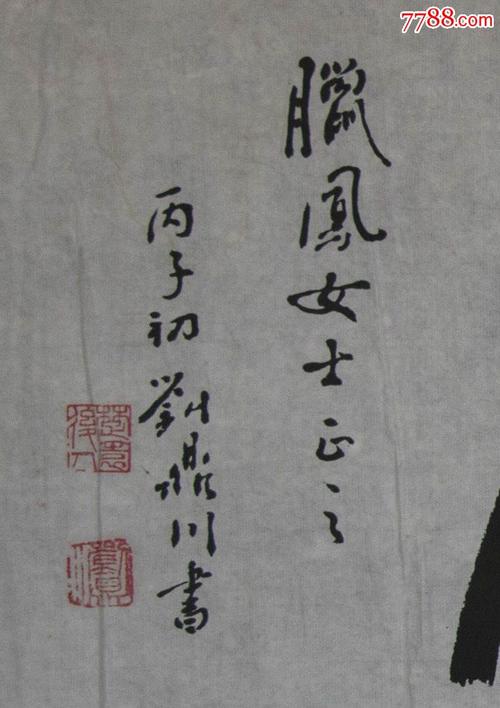 7788.com
臘鳳女士正之
丙子初劉鼎川書